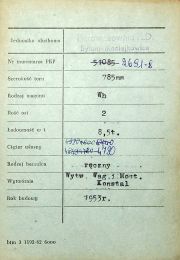 Jednostka służbowa
Nr inwentarza PKP 51085 2651-8
Szerokość toru 785mm
Rodzaj wagonu Wh
Ilość osi 2
Ładowność w t 8,5t.
Ciężar własny 4780
Rodzaj hamulca ręczny
Wytwórnia Wytw. Wag. i Most.
Konstal
Rok budowy 1953r.